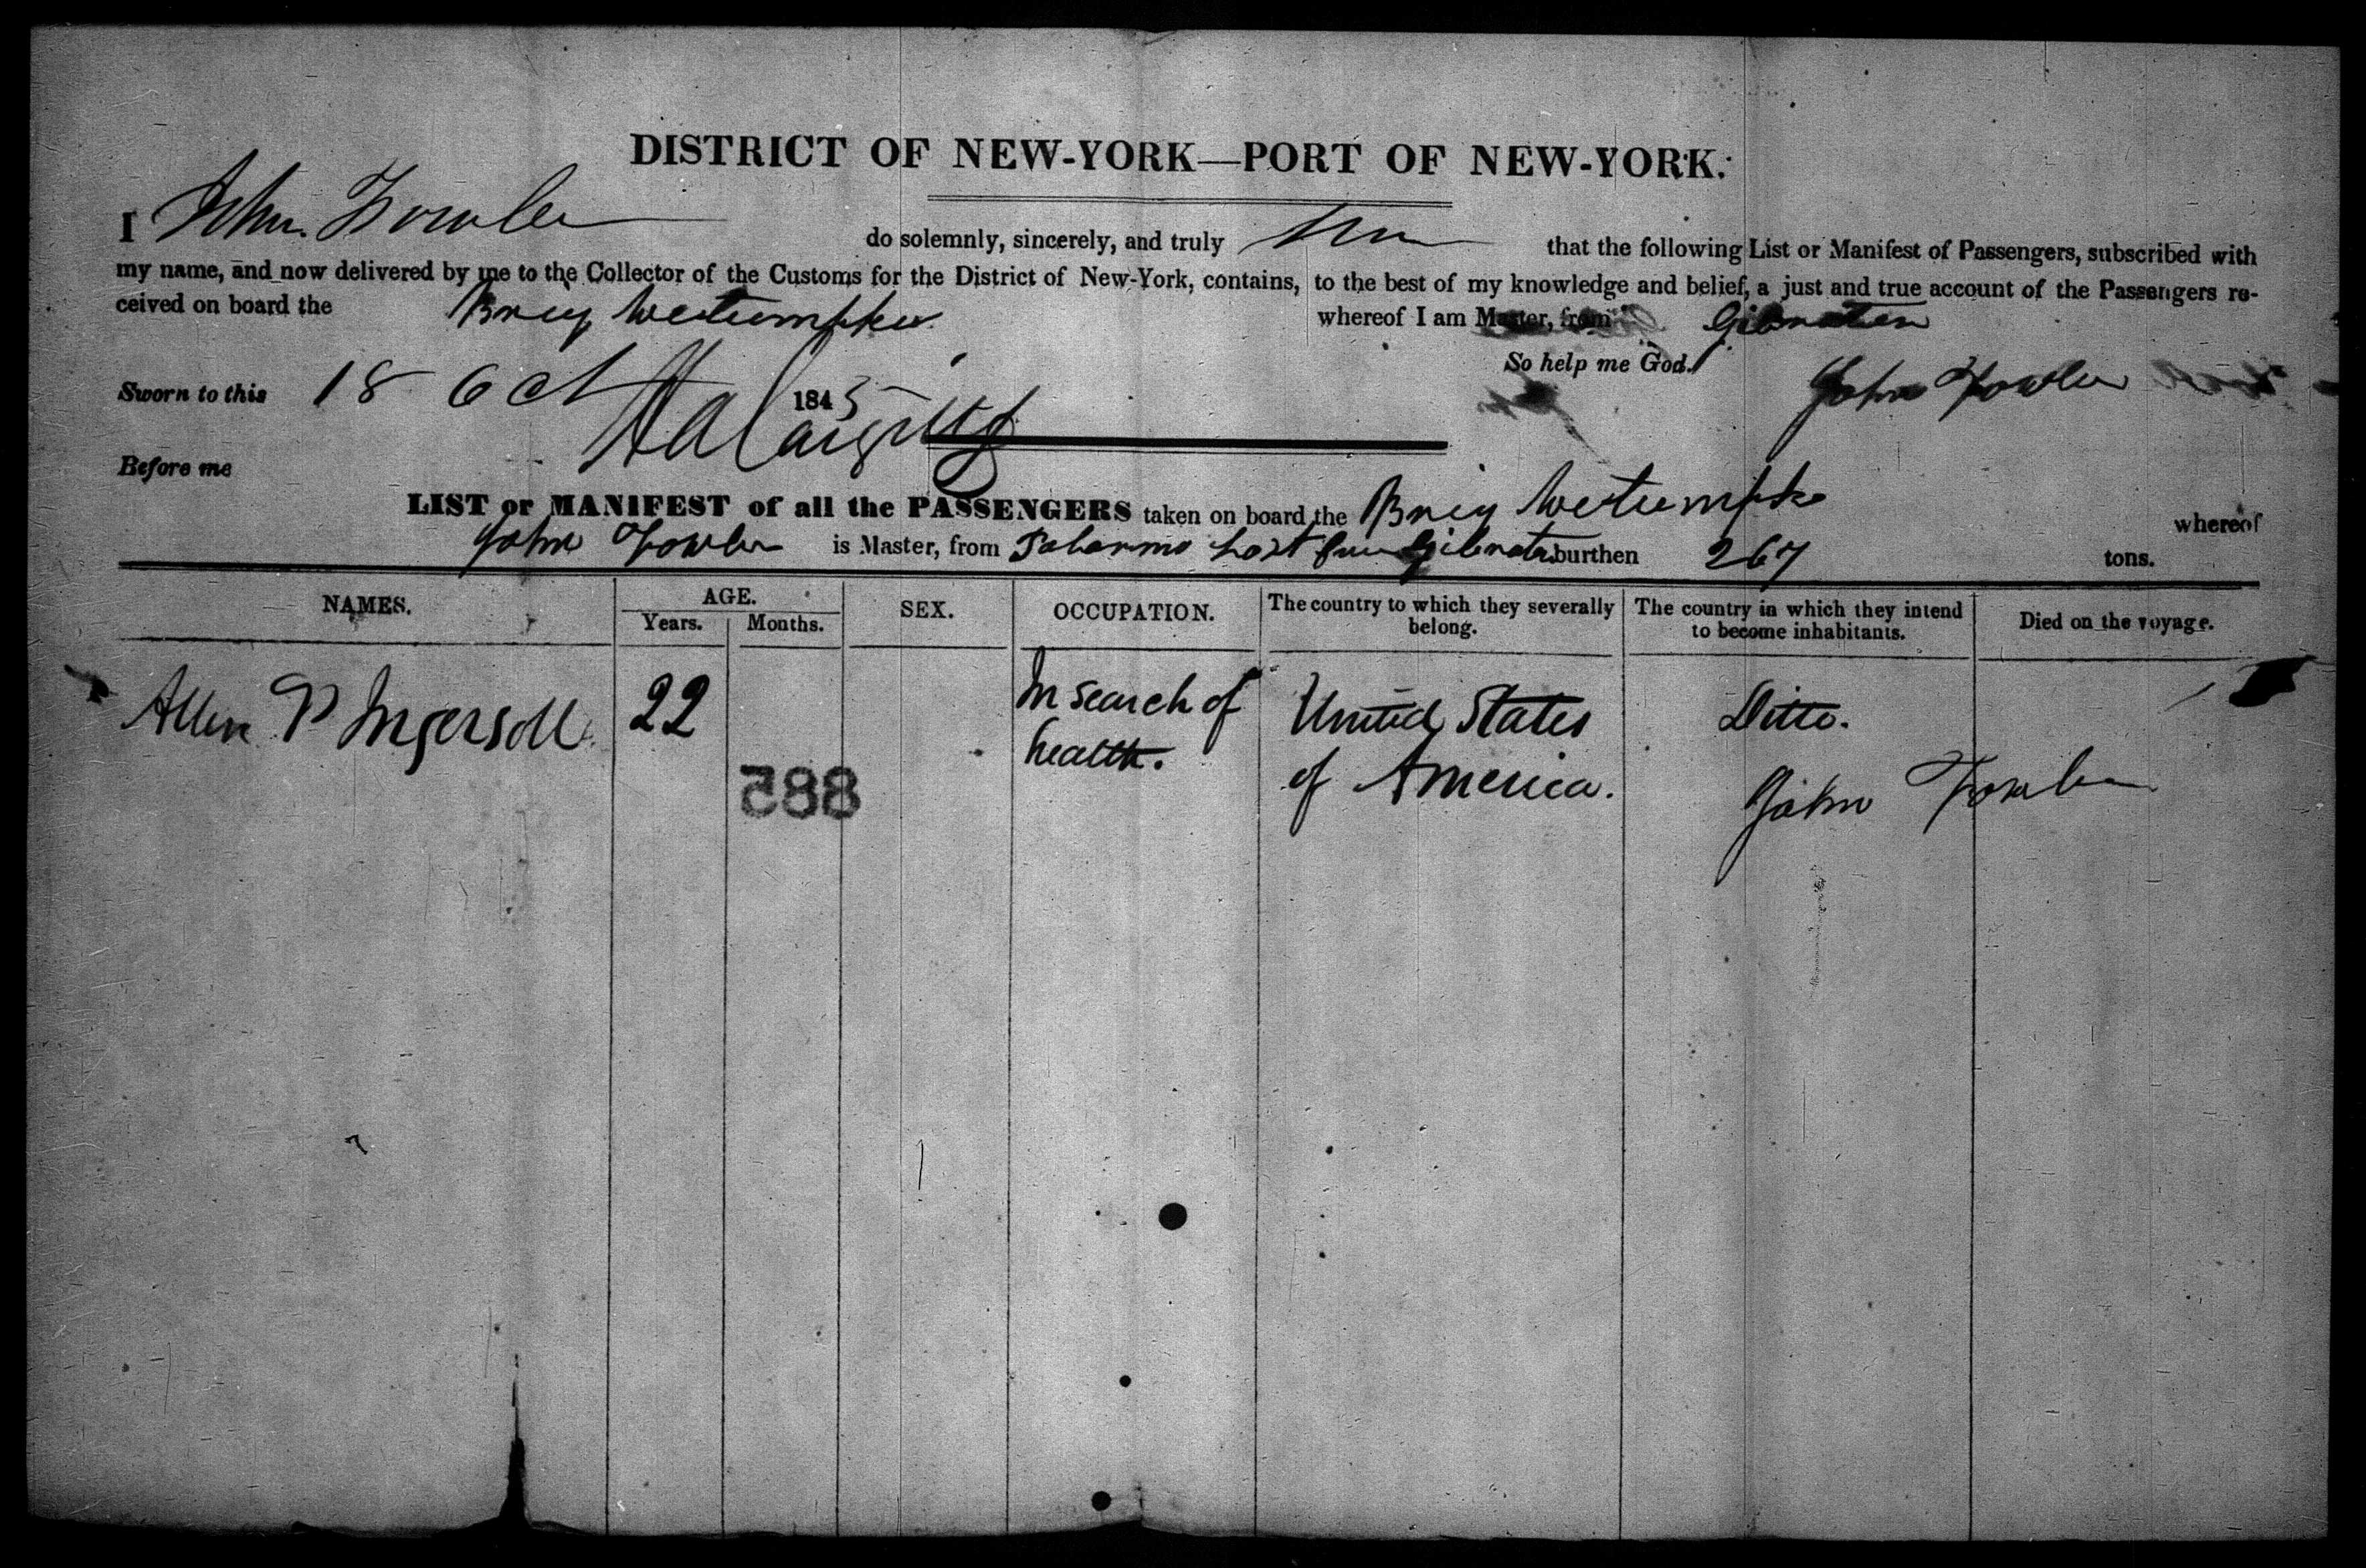 DISTRICT OF NEW-YORK—PORT OF NEW-YORK.
I John Fowler do solemnly, sincerely, and truly that the following List or Manifest of Passengers, subscribed with
my name, and now delivered by me to the Collector of the Customs for the District of New-York, contains, to the best of my knowledge and belief, a just and true account of the Passengers re-
ceived on board the Brig Wetumpka whereof I am Master, from Gibraltar
So help me God.
Sworn to this 18 Oct 1845 John Fowler
Before me
LIST or MANIFEST of all the PASSENGERS taken on board the Brig Wetumpka whereof
John Fowler is Master, from Palermo Last from Gibraltar burthen 267 tons.
NAMES. AGE. Years. Months. SEX. OCCUPATION. The country to which they severally belong. The country in which they intend to become inhabitants. Died on the voyage.
Allen P Ingersoll. 22 In search of United States Ditto.
health. of America. John Fowler
885